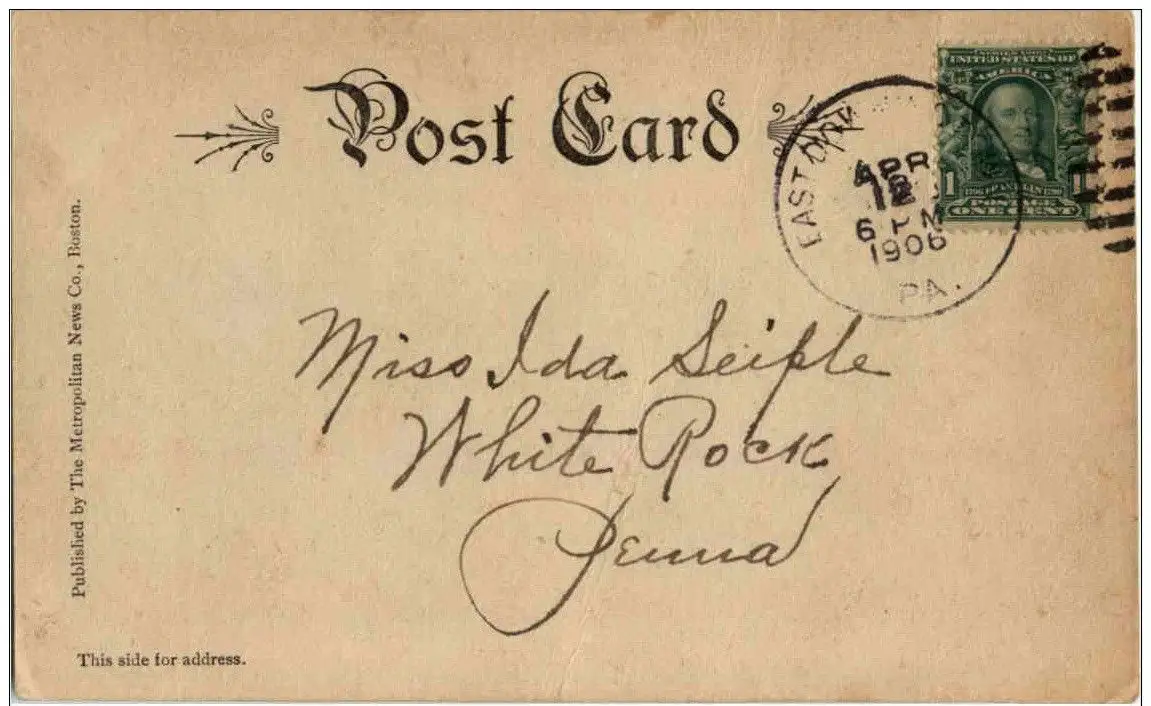 Post Card
EAST
APR
12
6 PM
1906
PA.
UNITED STATES OF
AMERICA
1 FRANKLIN 1
POSTAGE
ONE CENT
Miss Ida Seiple
White Rock
Penna
Published by The Metropolitan News Co., Boston.
This side for address.